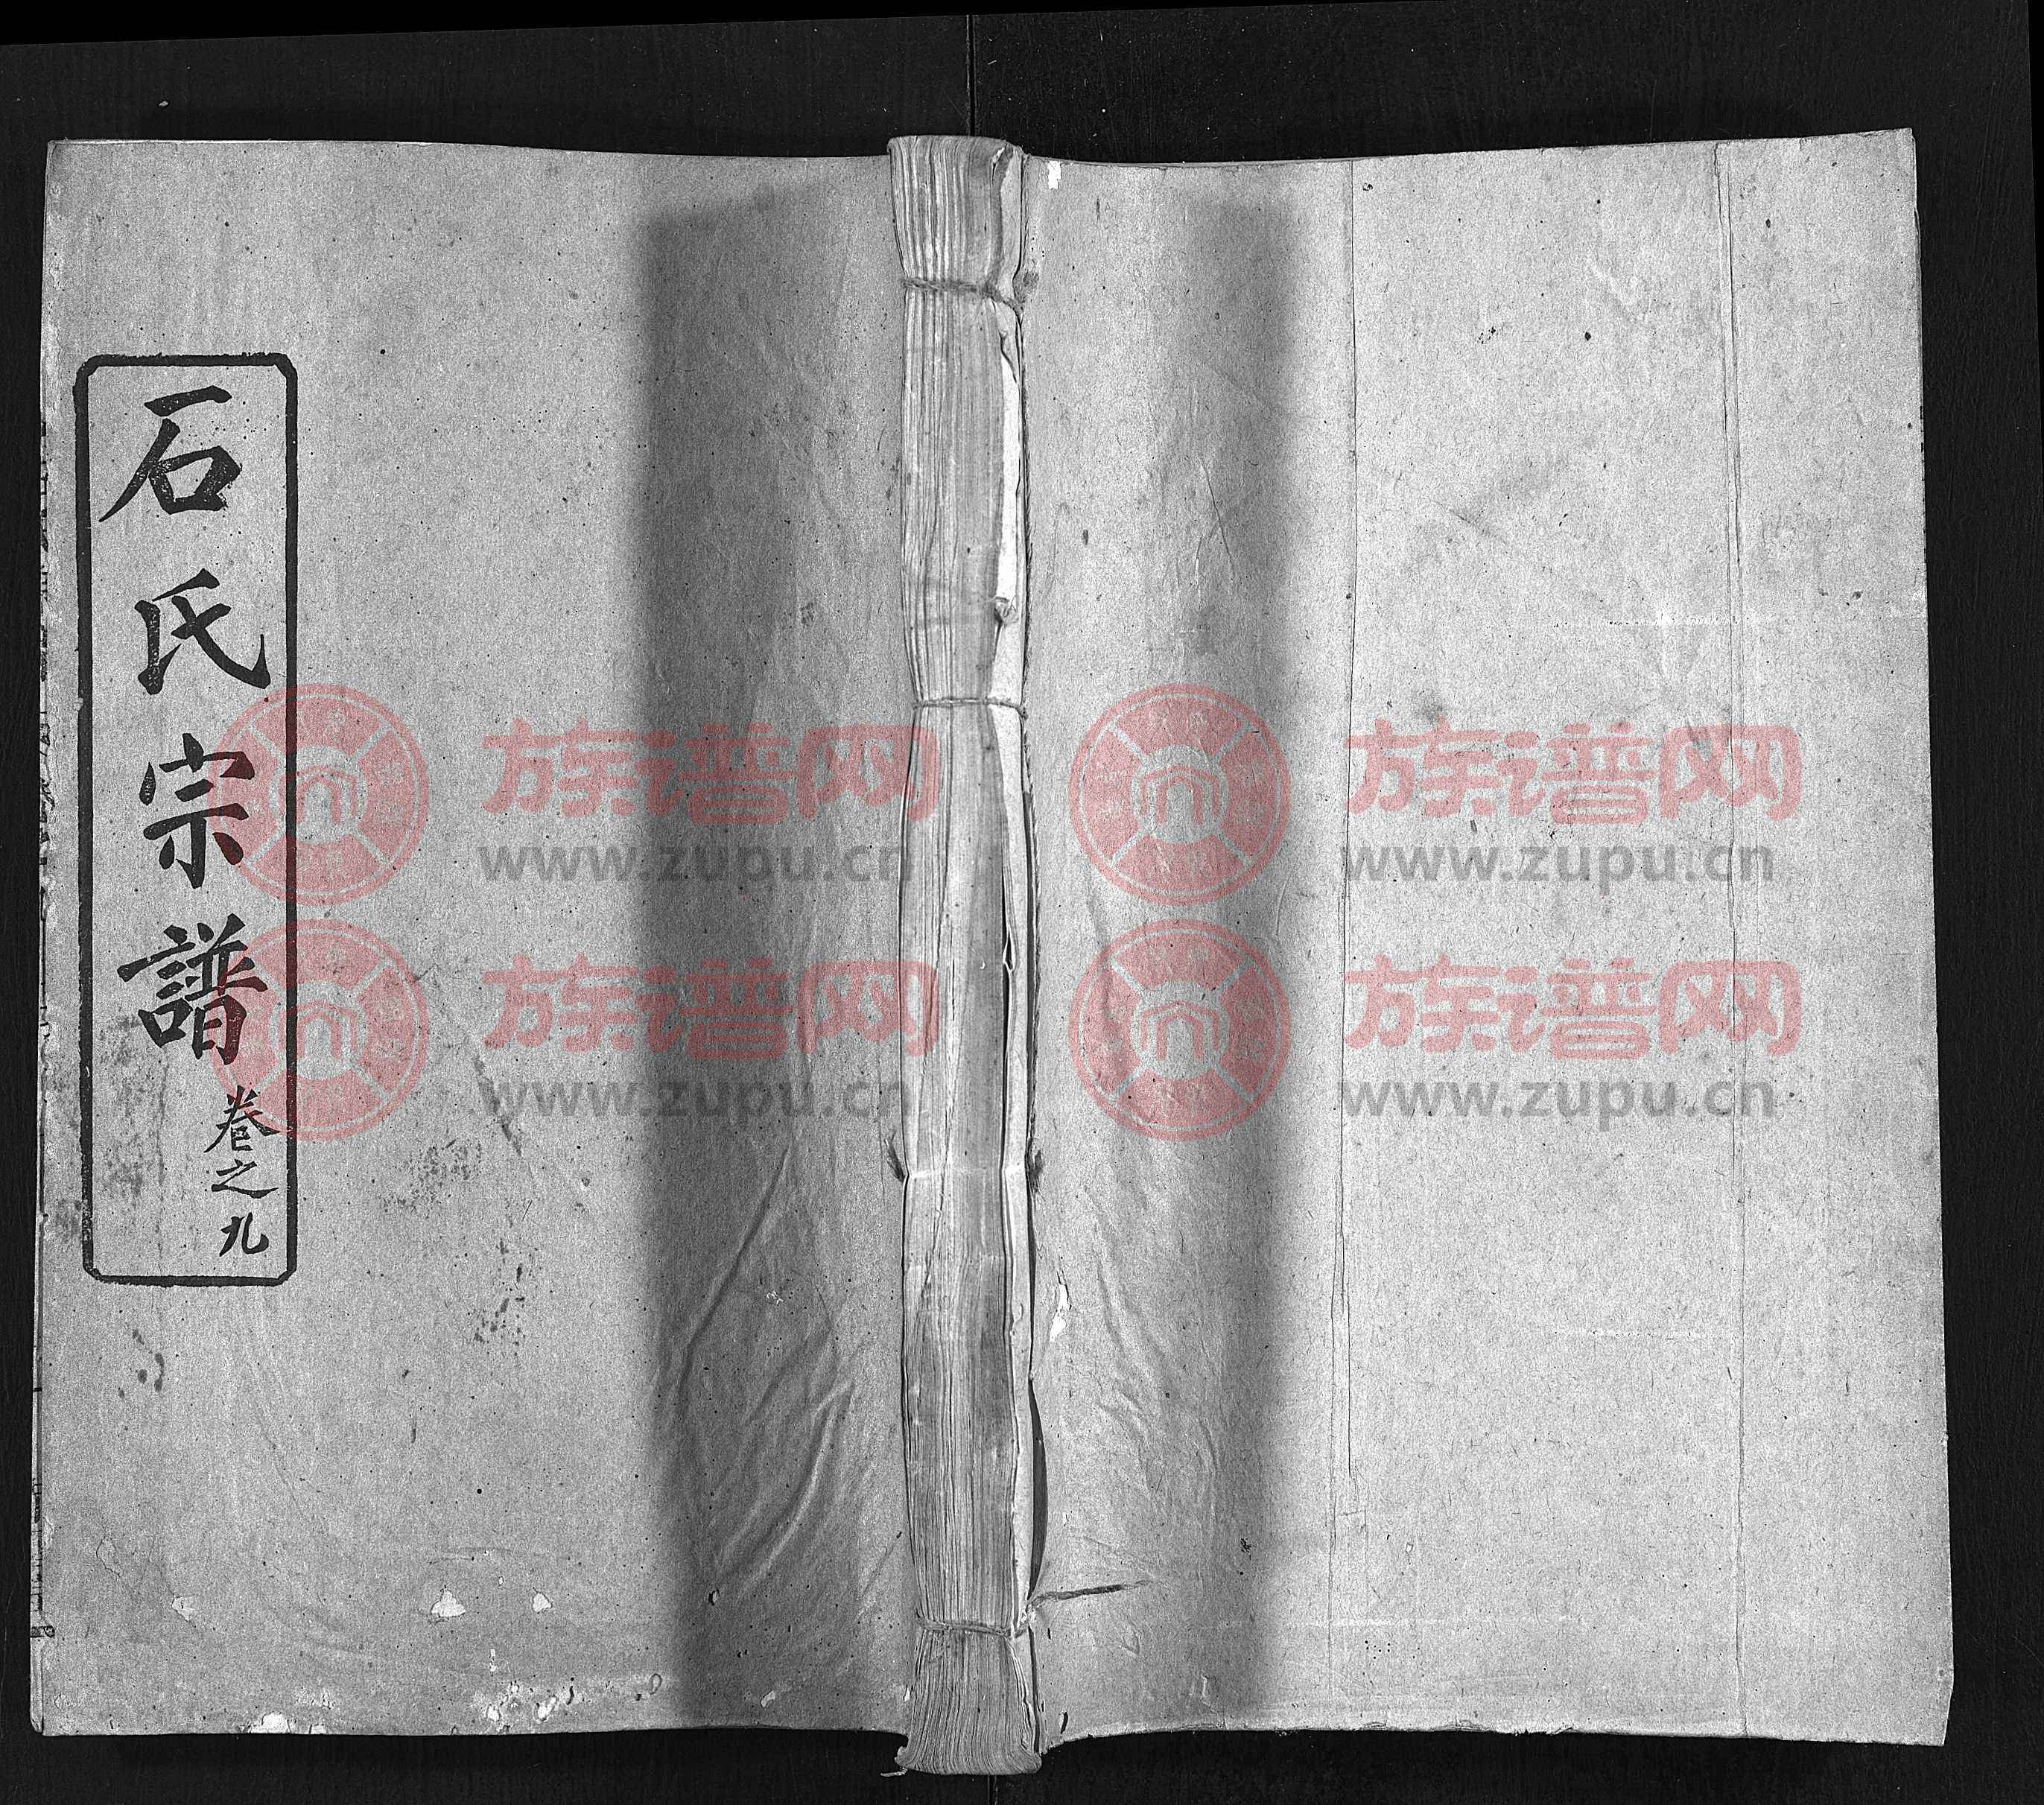 石氏宗譜
卷之九
族谱网
www.zupu.cn
族谱网
www.zupu.cn
族谱网
www.zupu.cn
族谱网
www.zupu.cn